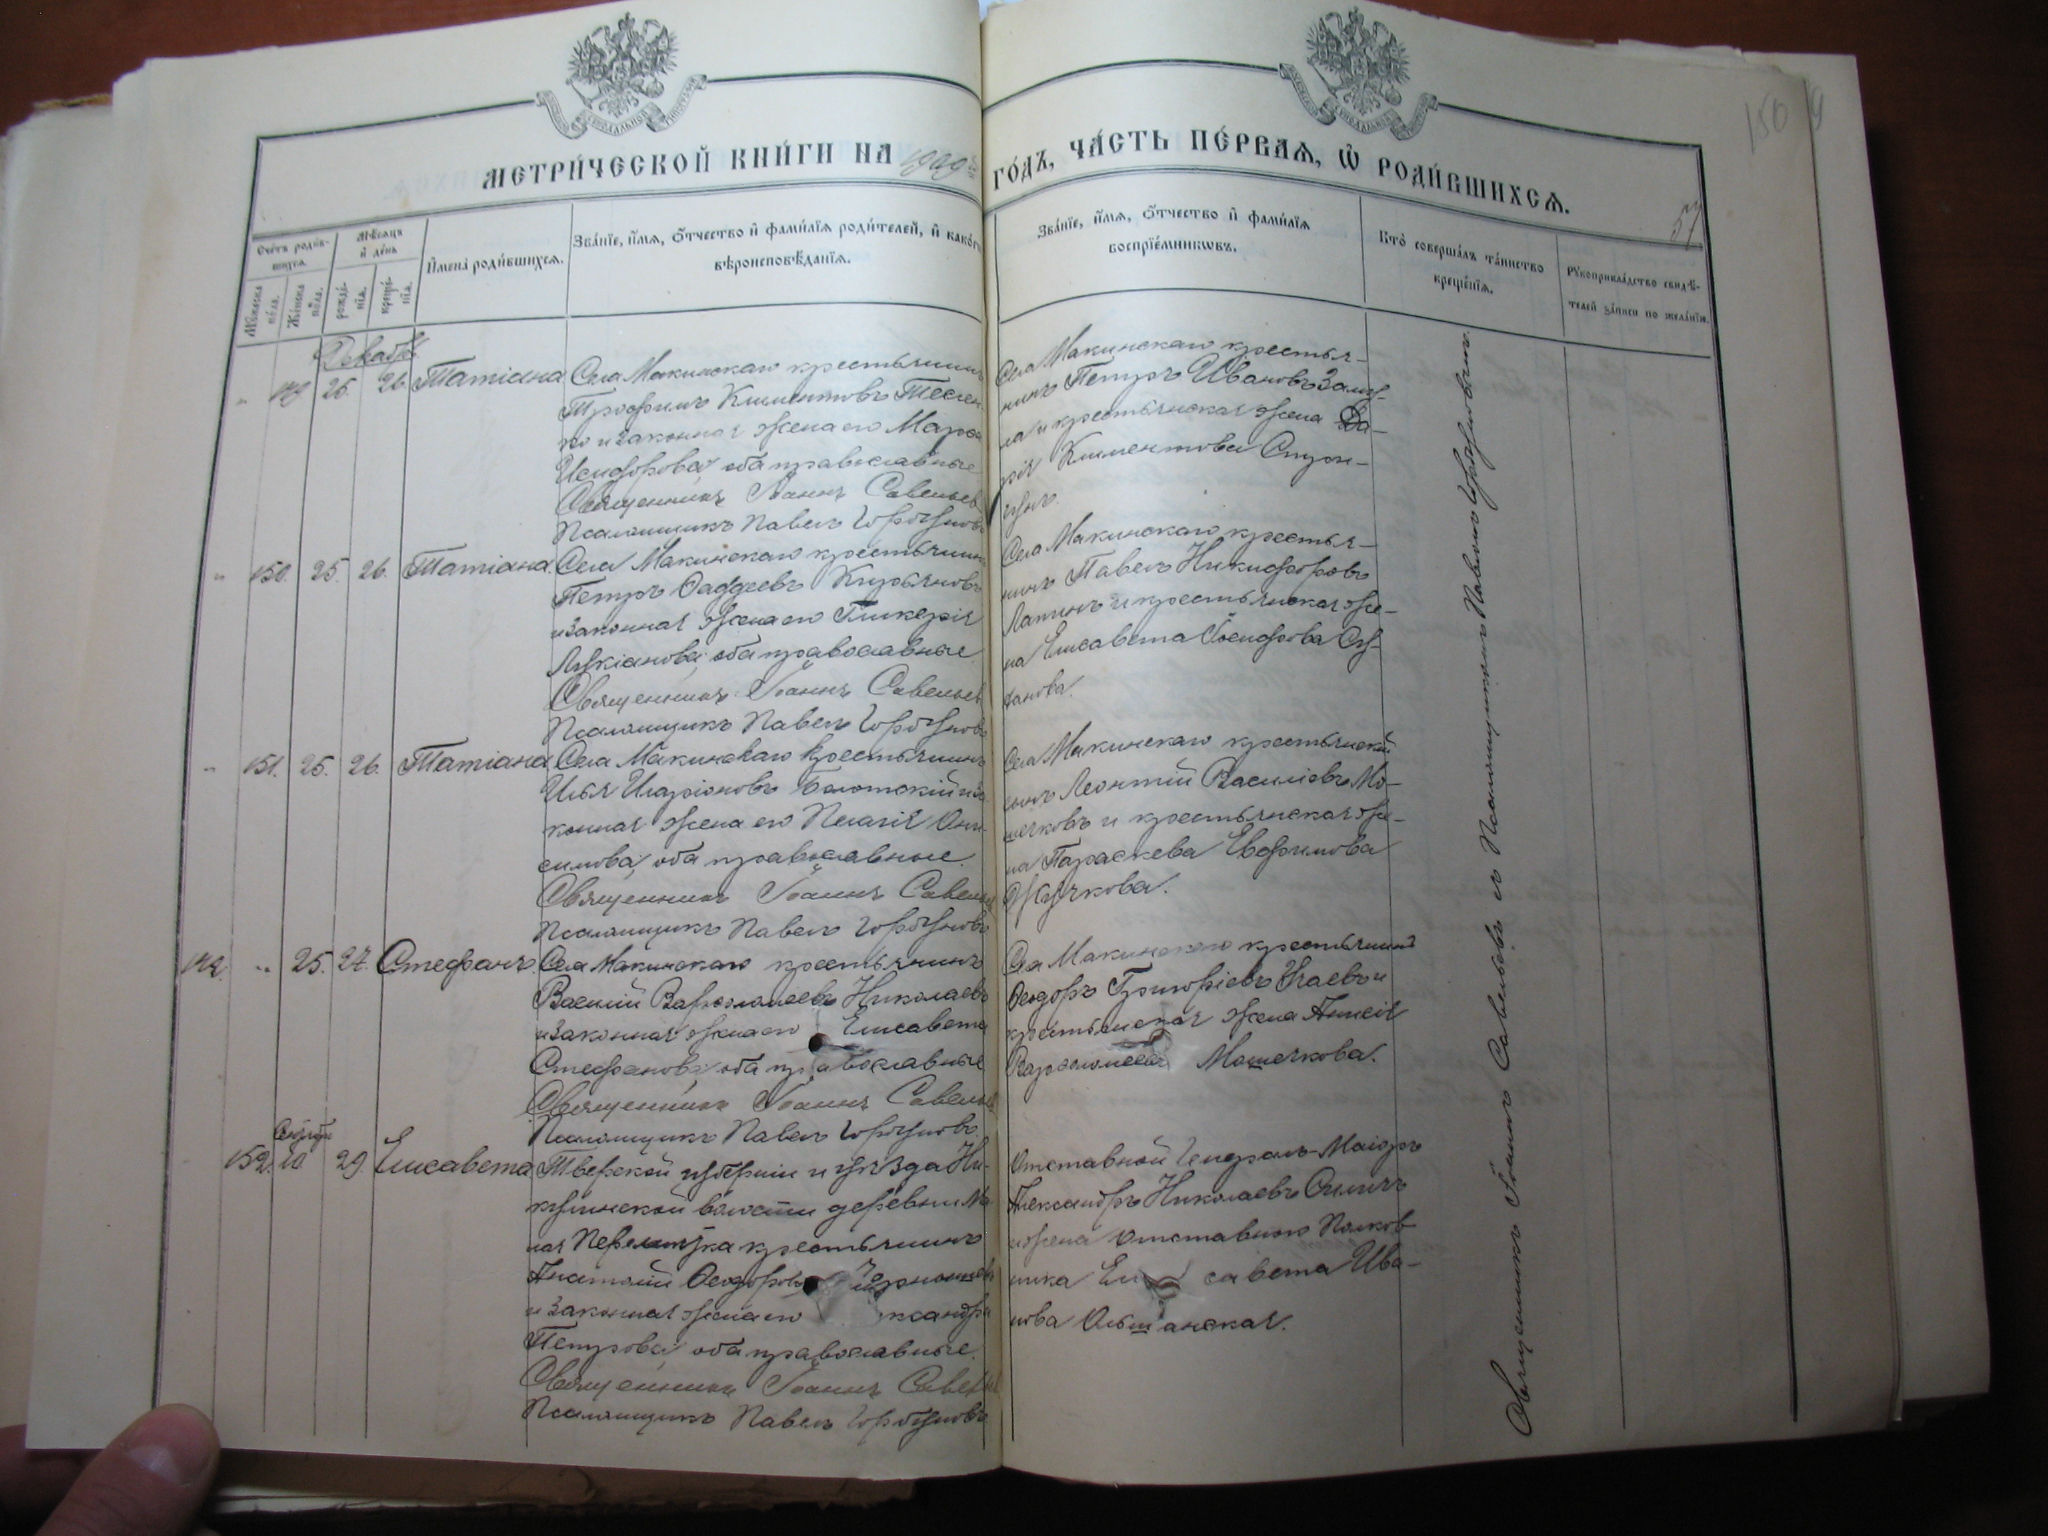 МЕТРИ́ЧЕСКОЙ КНИ́ГИ НА 1909 й ГО́ДЪ, ЧА́СТЬ ПЕ́РВАЯ, Ѡ҆ РОДИ́ВШИХСЯ.
150
57
Счетъ роди́вшихся.
Му́жеска по́ла.
Же́нска по́ла.
Мѣ́сяцъ и҆ де́нь
рожде́нїя.
креще́нїя.
И҆мена̀ роди́вшихся.
Зва́нїе, и҆́мя, ѻ҆́тчество и҆ фами́лїя роди́телей, и҆ како́гѡ
вѣроисповѣ́данїя.
Зва́нїе, и҆́мя, ѻ҆́тчество и҆ фами́лїя
воспрїе́мникѡвъ.
Кто̀ соверша́лъ та́инство
креще́нїя.
Рукоприкла́дство свидѣ́-
телей за́писи по жела́нїю.
Декабрь.
149 25. 26. Татiана
Села Макинскаго крестьянинъ
Трофимъ Климентовъ Тесленко
и законная жена его Марfа
Исидорова, оба православные
Священникъ Iоаннъ Савельевъ
Псаломщикъ Павелъ Горбуновъ
Села Макинскаго крестья-
нинъ Петръ Ивановъ
и крестьянская жена Да-
рiя Климентова
150. 25. 26. Татiана.
Села Макинскаго крестьянинъ
Петръ Фаддеевъ Кирьяновъ
и законная жена его Гликерiя
Лукiанова, оба православные
Священникъ Iоаннъ Савельевъ
Псаломщикъ Павелъ Горбуновъ
Села Макинскаго крестья-
нинъ Павелъ Никифоровъ
Лапинъ и крестьянская же-
на Елисавета Исидорова
151. 25. 26. Татiана
Села Макинскаго крестьянинъ
Илья Иларiоновъ Болотскiй и за
конная жена его Пелагiя Они-
симова, оба православные.
Священникъ Iоаннъ Савельевъ
Псаломщикъ Павелъ Горбуновъ
Села Макинскаго крестьянскiй
сынъ Леонтiй Василiевъ Мо-
шечковъ и крестьянская же-
на Параскева Евфимова
Жучкова.
142. " 25. 27. Стефанъ.
Села Макинскаго крестьянинъ
Василiй Варfоломеевъ Николаевъ
и законная жена его Елисавета
Стефанова, оба православные
Священникъ Iоаннъ Савельевъ
Псаломщикъ Павелъ Горбуновъ
Села Макинскаго крестьянинъ
Fеодоръ Григорiевъ Исаевъ и
крестьянская жена Анисiя
Варfоломеева Мошечкова.
152. 10 29 Елисавета
Тверской губернiи и уѣзда Ни-
кулинской волости деревни Ма
лая Перемѣрка крестьянинъ
Анатолiй Fеодоровъ
и законная жена его ксандра
Петрова, оба православные.
Священникъ Iоаннъ Савельевъ
Псаломщикъ Павелъ Горбуновъ
Отставной Генералъ-Маiоръ
Александръ Николаевъ
и жена отставного Полков
ника Елисавета Ива-
нова Ольшанская.
Священникъ Iоаннъ Савельевъ съ Псаломщикомъ Павломъ Горбуновымъ.